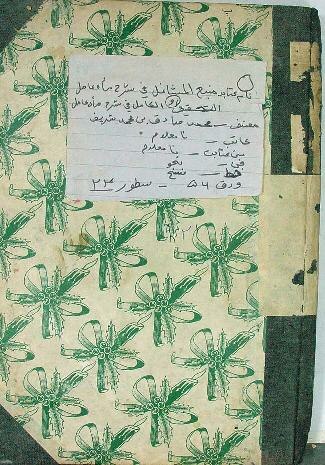 نام کتاب منبع المسائل فی شرح مأة عامل
التحقیق الکامل فی شرح مأة عامل
مصنف - محمد صادق بن محمد شریف
کاتب - نامعلوم
سن کتابت - نامعلوم
فن - نحو
خط - نسخ
ورق ۵۶ - سطور ۲۳